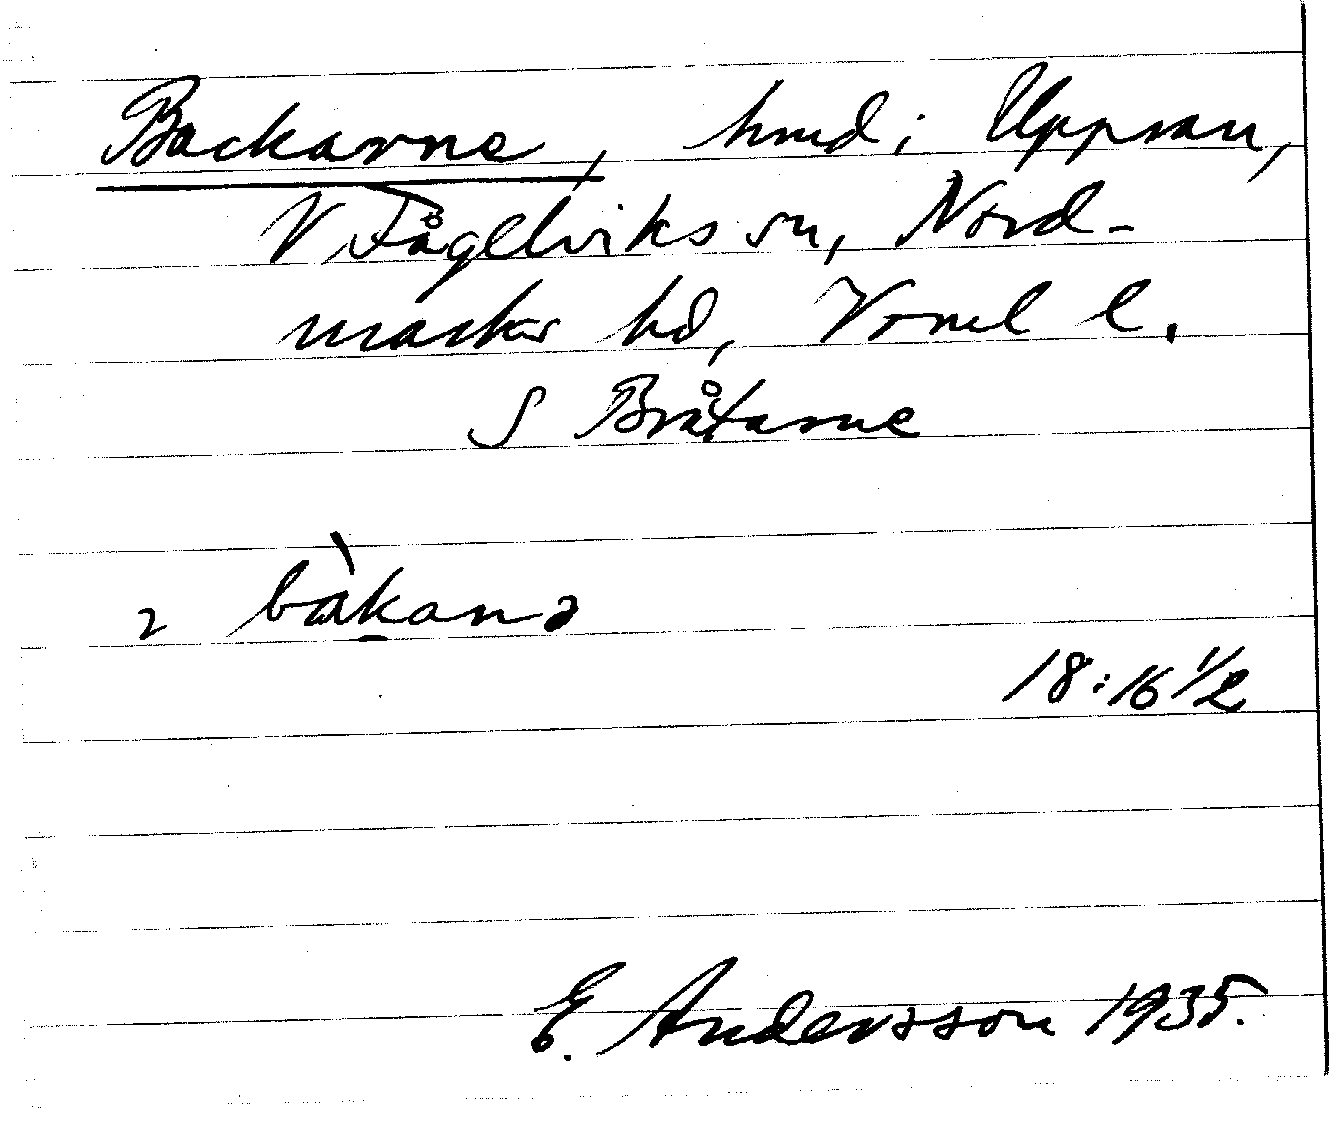 Backarne, hmd i Uppsau,
V Fågelviks sn, Nord-
marks hd, Vrml l.
S Bråtarne
2 bàkanə
18:16 1/2
E. Andersson 1935.